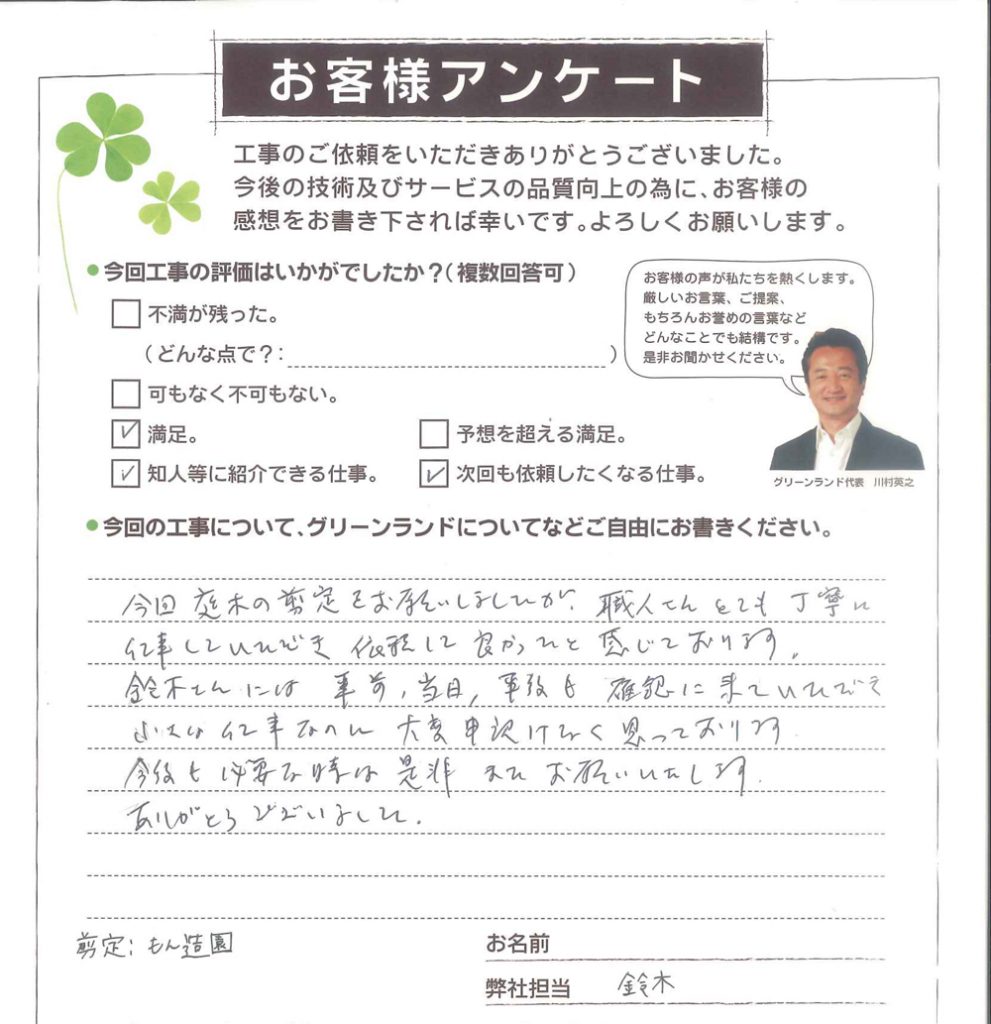 お客様アンケート
工事のご依頼をいただきありがとうございました。
今後の技術及びサービスの品質向上の為に、お客様の
感想をお書き下されば幸いです。よろしくお願いします。
●今回工事の評価はいかがでしたか？（複数回答可）
□ 不満が残った。
（どんな点で？：　　　）
□ 可もなく不可もない。
☑ 満足。
□ 予想を超える満足。
☑ 知人等に紹介できる仕事。
☑ 次回も依頼したくなる仕事。
お客様の声が私たちを熱くします。
厳しいお言葉、ご提案、
もちろんお誉めの言葉など
どんなことでも結構です。
是非お聞かせください。
グリーンランド代表　川村英之
●今回の工事について、グリーンランドについてなどご自由にお書きください。
今回 庭木の剪定をお願いしましたが、職人さんとても丁寧に
仕事していただき 依頼して良かったと感じております。
鈴木さんには 事前，当日，事後も 確認に来ていただき
小さな仕事なのに 大変申訳けなく思っております
今後も必要な時は是非 またお願いいたします．
ありがとうございました．
剪定：もん造園
お名前
弊社担当　鈴木